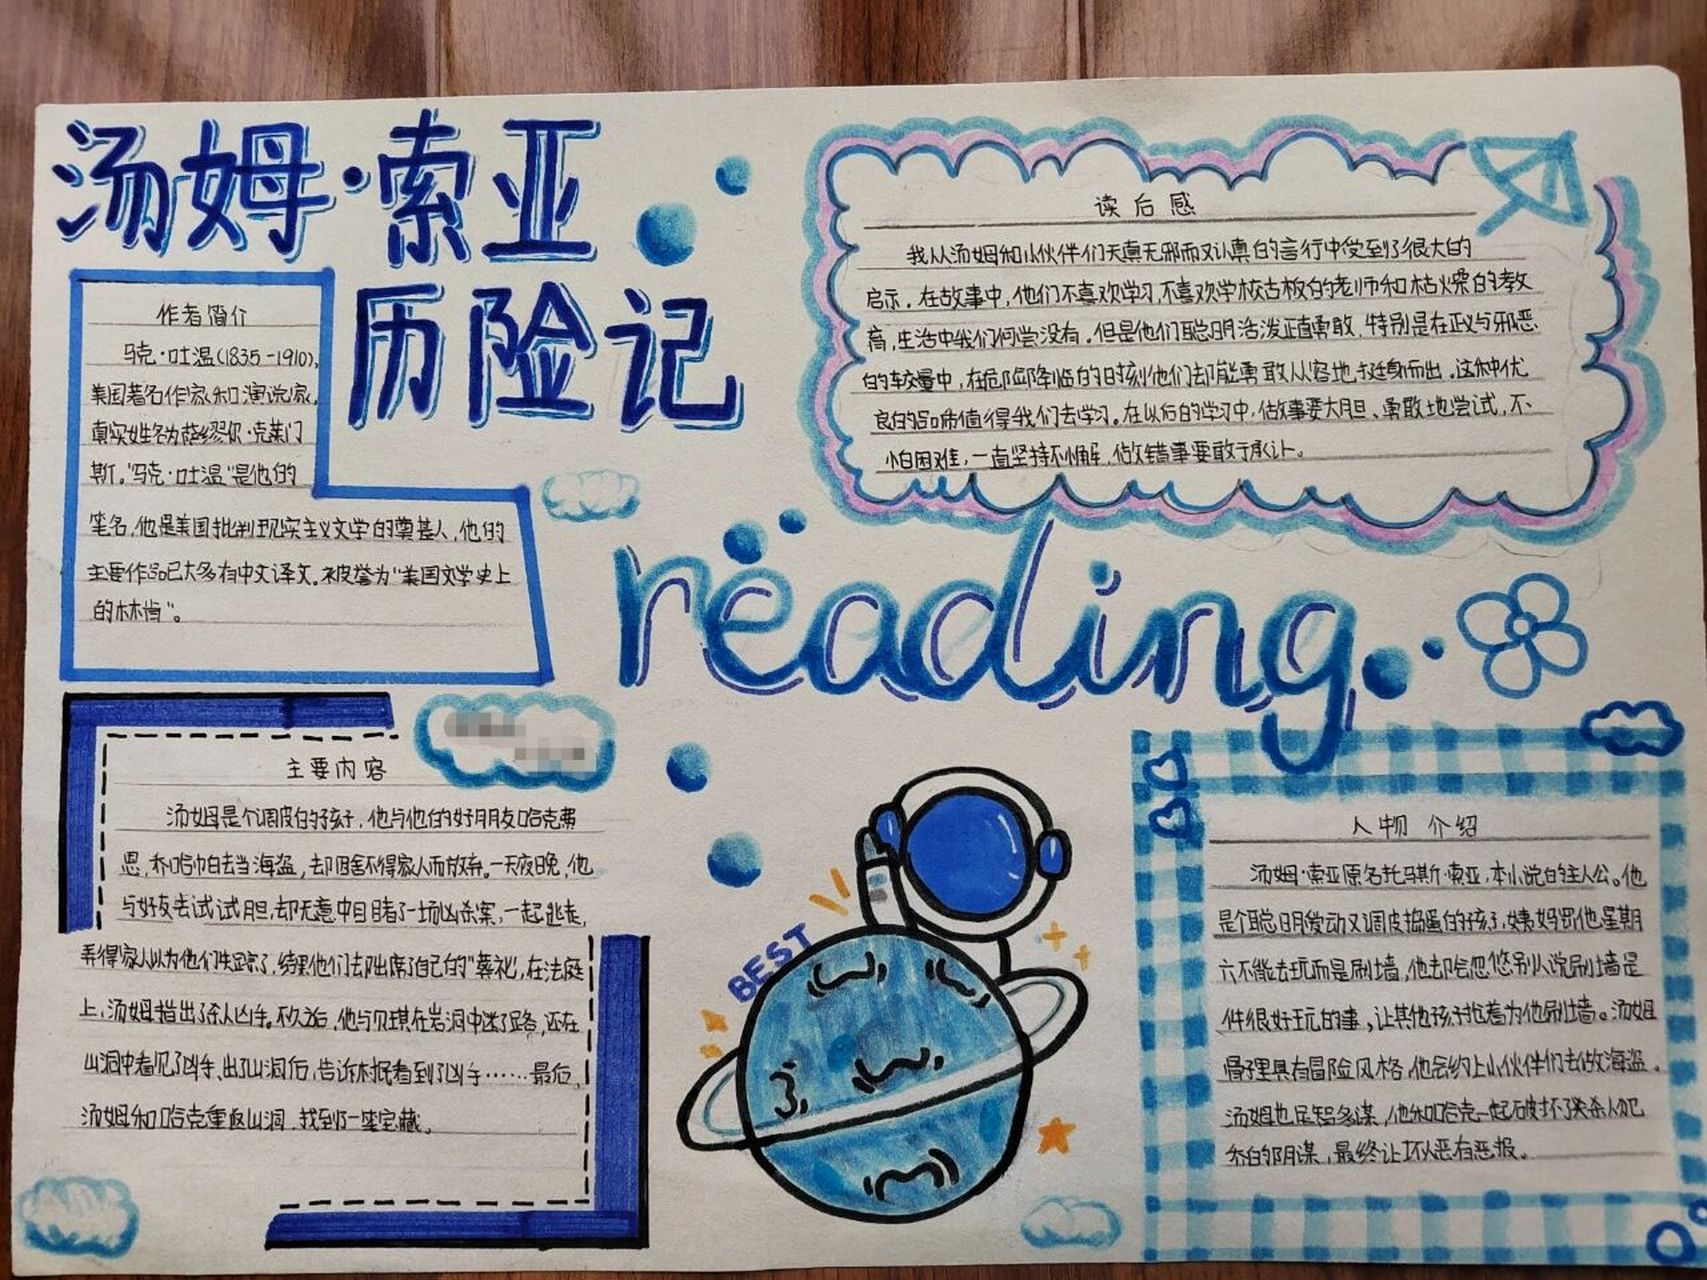 汤姆·索亚
历险记
作者简介
马克·吐温(1835-1910),
美国著名作家和演说家,
真实姓名为萨缪尔·克莱门
斯。"马克·吐温"是他的
笔名,他是美国批判现实主义文学的奠基人,他的
主要作品已大多有中文译文。被誉为"美国文学史上
的林肯"。
读后感
我从汤姆和小伙伴们天真无邪而又认真的言行中受到了很大的
启示。在故事中,他们不喜欢学习,不喜欢学校古板的老师和枯燥的教
育,生活中我们何尝没有。但是他们聪明活泼正直勇敢,特别是在正义与邪恶
的较量中,在危险降临的时刻他们却能勇敢从容地挺身而出。这种优
良的品质值得我们去学习。在以后的学习中,做事要大胆、勇敢地尝试,不
怕困难,一直坚持不懈,做错事要敢于承认。
reading
主要内容
汤姆是个调皮的孩子,他与他的好朋友哈克费
恩,乔哈帕去当海盗,却因舍不得家人而放弃。一天夜晚,他
与好友去试试胆,却无意中目睹了一场凶杀案,一起逃走,
弄得家人以为他们失踪了,结果他们去却出席了自己的"葬礼",在法庭
上,汤姆指出了杀人凶手。不久之后,他与贝琪在岩洞中迷了路,还在
山洞中看见了凶手、出了山洞后,告诉村民看到了凶手……最后,
汤姆和哈克重返山洞,找到了一座宝藏。
BEST
人物介绍
汤姆·索亚原名托马斯·索亚,本小说的主人公。他
是个聪明爱动又调皮捣蛋的孩子,姨妈罚他星期
六不能去玩而是刷墙,他却会忽悠别人说刷墙是
件很好玩的事,让其他孩子抢着为他刷墙。汤姆
骨子里具有冒险风格,他会约上小伙伴们去做海盗。
汤姆也足智多谋,他和哈克一起破坏了杀人犯
乔的阴谋,最终让坏人恶有恶报。